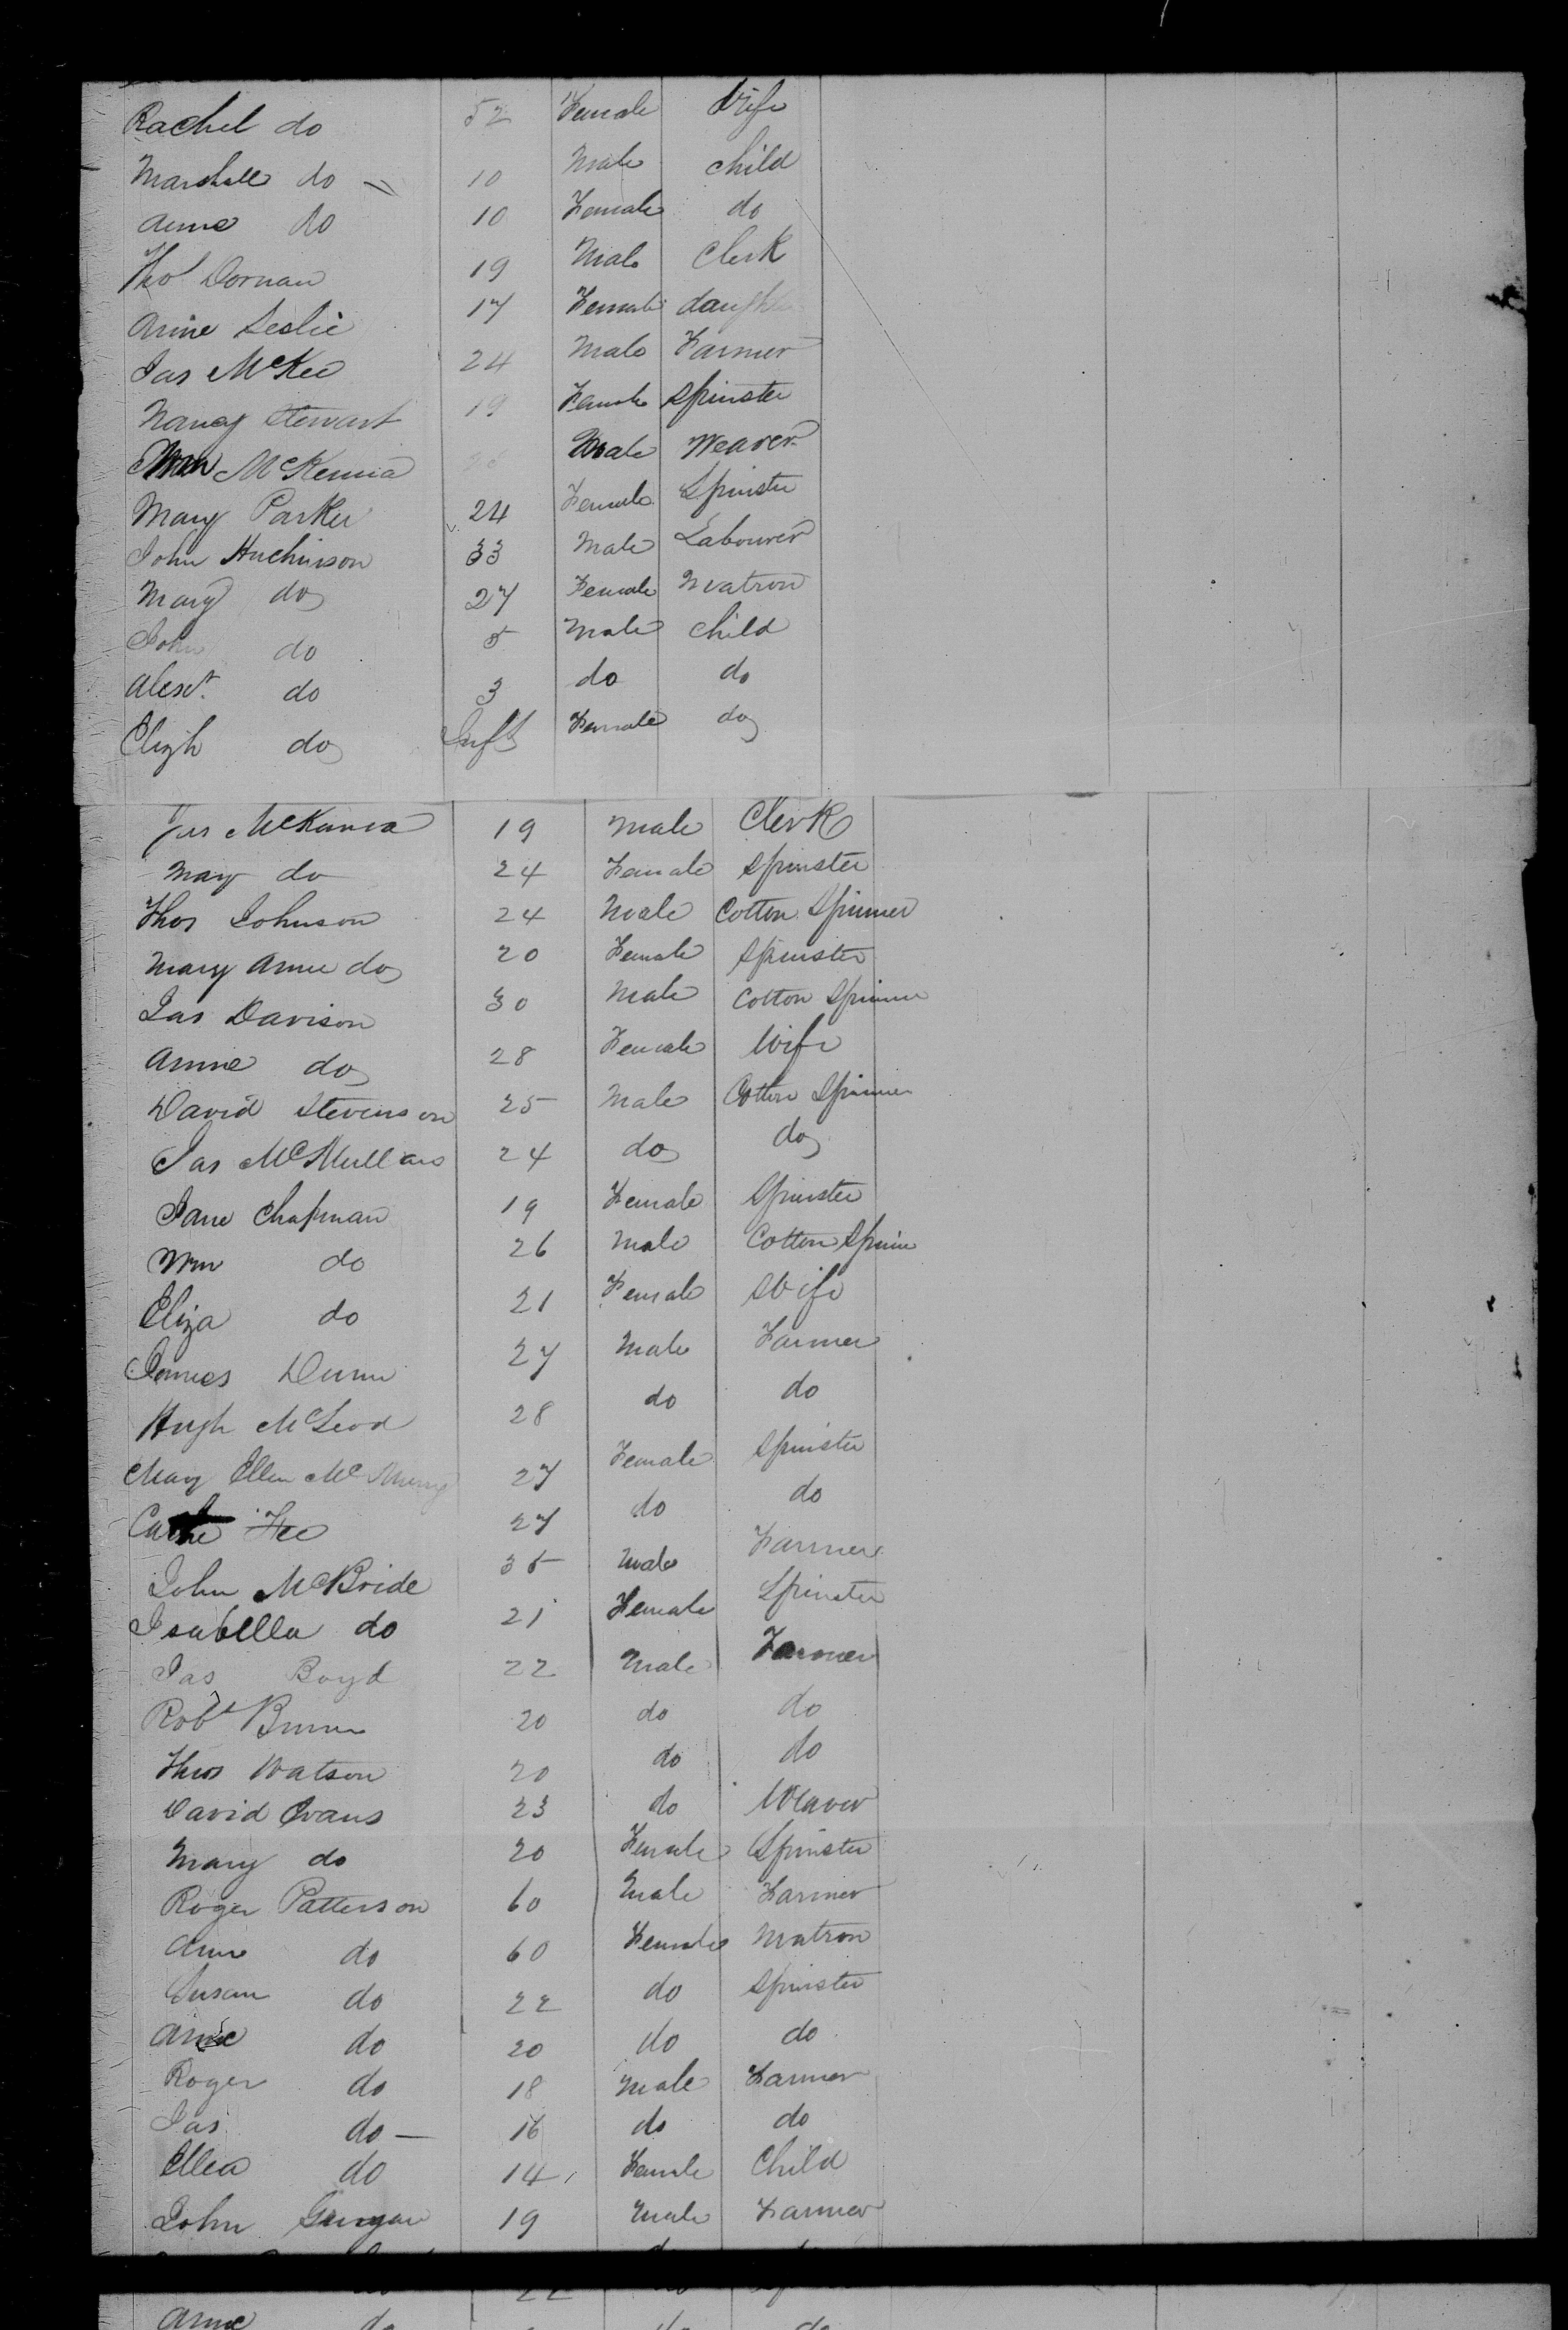 Rachel do 52 Female Wife
Marshall do 10 Male child
Anne do 10 Female do
Thos Dornan 19 Male Clerk
Anne Leslie 17 Female daugh
Jas McKee 24 Male Farmer
Nancy Stewart 19 Female Spinster
Wm McKenna Male Weaver
Mary Parker 24 Female Spinster
John Huchinson 33 Male Labourer
Mary do 27 Female Matron
John do 5 Male child
Alexr. do 3 do do
Elizh do Inft Female do
Jas McKanna 19 Male Clerk
Mary do 24 Female Spinster
Thos Johnson 24 Male Cotton Spinner
Mary Anne do 20 Female Spinster
Jas Davison 30 Male Cotton Spinner
Anne do 28 Female Wife
David Stevenson 25 Male Cotton Spinner
Jas McMullans 24 do do
Jane Chapman 19 Female Spinster
Wm do 26 Male Cotton Spinn
Eliza do 21 Female Wife
James Dunn 27 Male Farmer
Hugh McLeod 28 do do
Mary Ellen Mc 27 Female Spinster
Fee 27 do do
John McBride 35 Male Farmer
Isabella do 21 Female Spinster
Jas Boyd 22 Male Farmer
Robt 20 do do
Thos Watson 20 do do
David Evans 23 do Weaver
Mary do 20 Female Spinster
Roger Patterson 60 Male Farmer
Ann do 60 Female Matron
Susan do 22 do Spinster
Anne do 20 do do
Roger do 18 Male Farmer
Jas do — 16 do do
Ellen do 14 Female Child
John 19 Male Farmer
do 22 do
Anne do do do